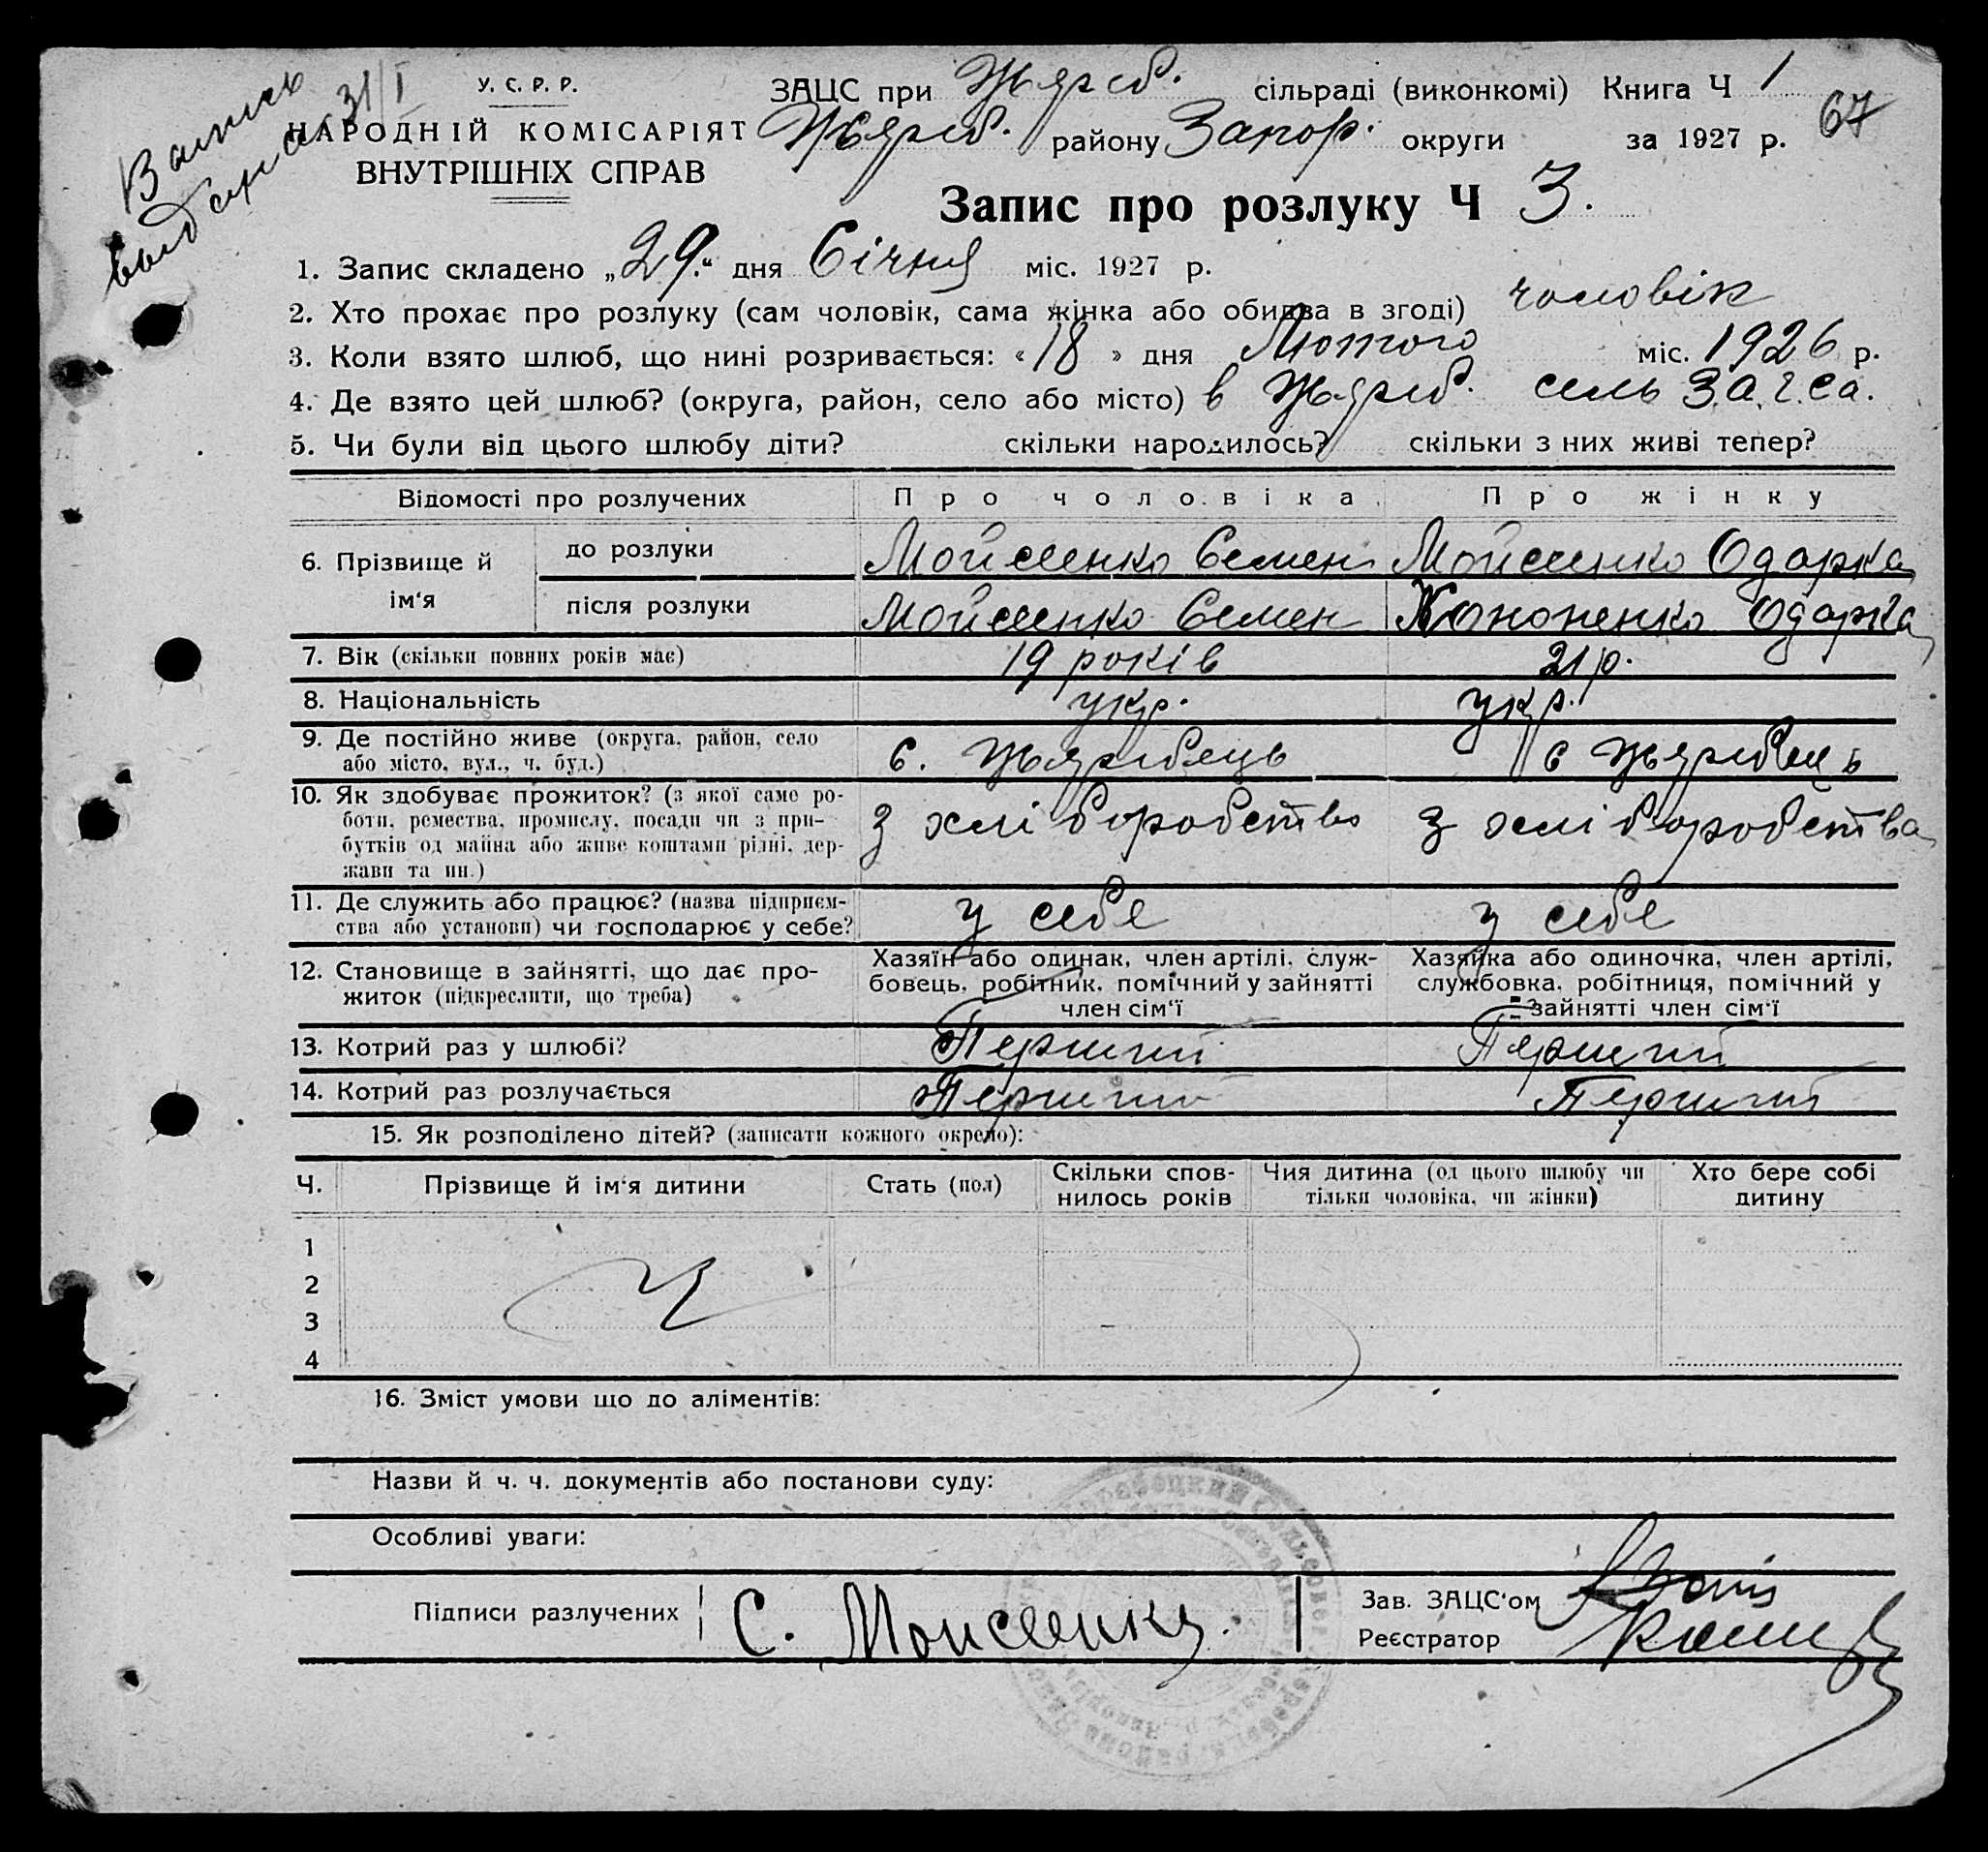 Запись
выд
31/I
У. С. Р. Р.
НАРОДНІЙ КОМІСАРІЯТ
ВНУТРІШНІХ СПРАВ
ЗАЦС при Жереб. сільраді (виконкомі) Книга Ч 1
Жереб. району Запор. округи за 1927 р. 67
Запис про розлуку Ч 3.
1. Запис складено „29.“ дня Січня міс. 1927 р.
2. Хто прохає про розлуку (сам чоловік, сама жінка або обидва в згоді) чоловік
3. Коли взято шлюб, що нині розривається: « 18 » дня Лютого міс. 1926 р.
4. Де взято цей шлюб? (округа, район, село або місто) в Жереб. сель З.А.Г.Са.
5. Чи були від цього шлюбу діти? скільки народилось? скільки з них живі тепер?
Відомості про розлучених Про чоловіка Про жінку
6. Прізвище й ім'я до розлуки Мойсеенко Семен Мойсеенко Одарка
після розлуки Мойсеенко Семен Кононенко Одарка
7. Вік (скільки повних років має) 19 років 21 р.
8. Національність укр. укр.
9. Де постійно живе (округа, район, село або місто, вул., ч. буд.) с. Жеребець с Жеребець
10. Як здобуває прожиток? (з якої саме роботи, ремества, промислу, посади чи з прибутків од майна або живе коштами рідні, держави та ин.) З хліборобство З хліборобства
11. Де служить або працює? (назва підприємства або установи) чи господарює у себе? у себе у себе
12. Становище в зайнятті, що дає прожиток (підкреслити, що треба) Хазяїн або одинак, член артілі, службовець, робітник, помічний у зайнятті член сім'ї Хазяйка або одиночка, член артілі, службовка, робітниця, помічний у зайнятті член сім'ї
13. Котрий раз у шлюбі? Перший Перший
14. Котрий раз розлучається Перший Перший
15. Як розподілено дітей? (записати кожного окремо):
Ч. Прізвище й ім'я дитини Стать (пол) Скільки сповнилось років Чия дитина (од цього шлюбу чи тільки чоловіка, чи жінки) Хто бере собі дитину
1
2
3
4
16. Зміст умови що до аліментів:
Назви й ч. ч. документів або постанови суду:
Особливі уваги:
Підписи разлучених С. Моисеенко. Зав. ЗАЦС'ом
Реєстратор